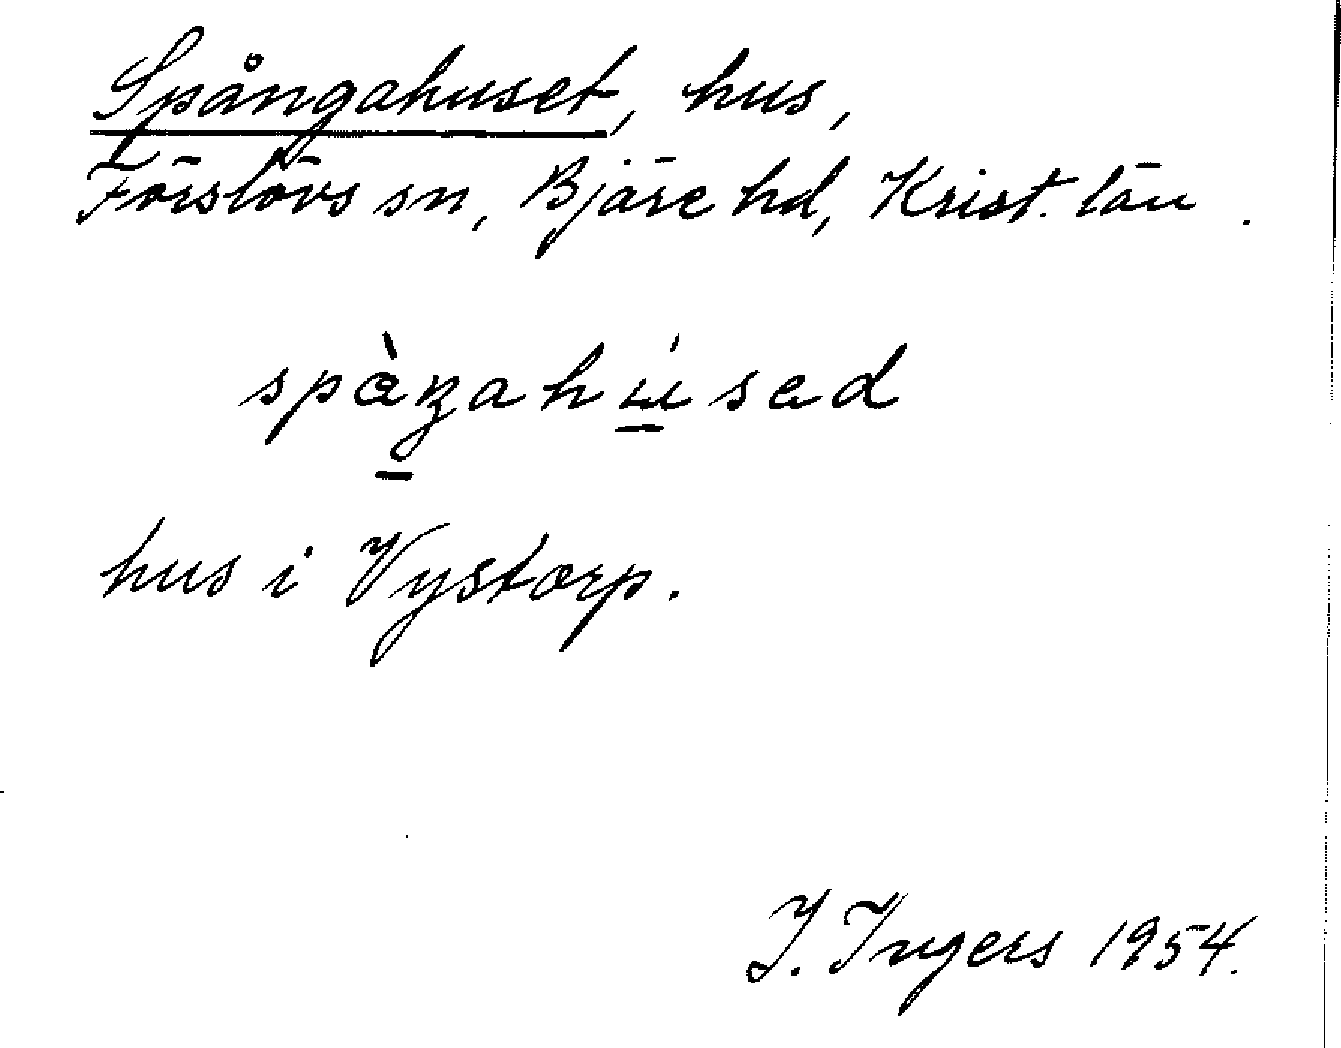 Spångahuset, hus,
Förslövs sn, Bjäre hd, Krist. län.
hus i Vystorp.
I. Ingers 1954.